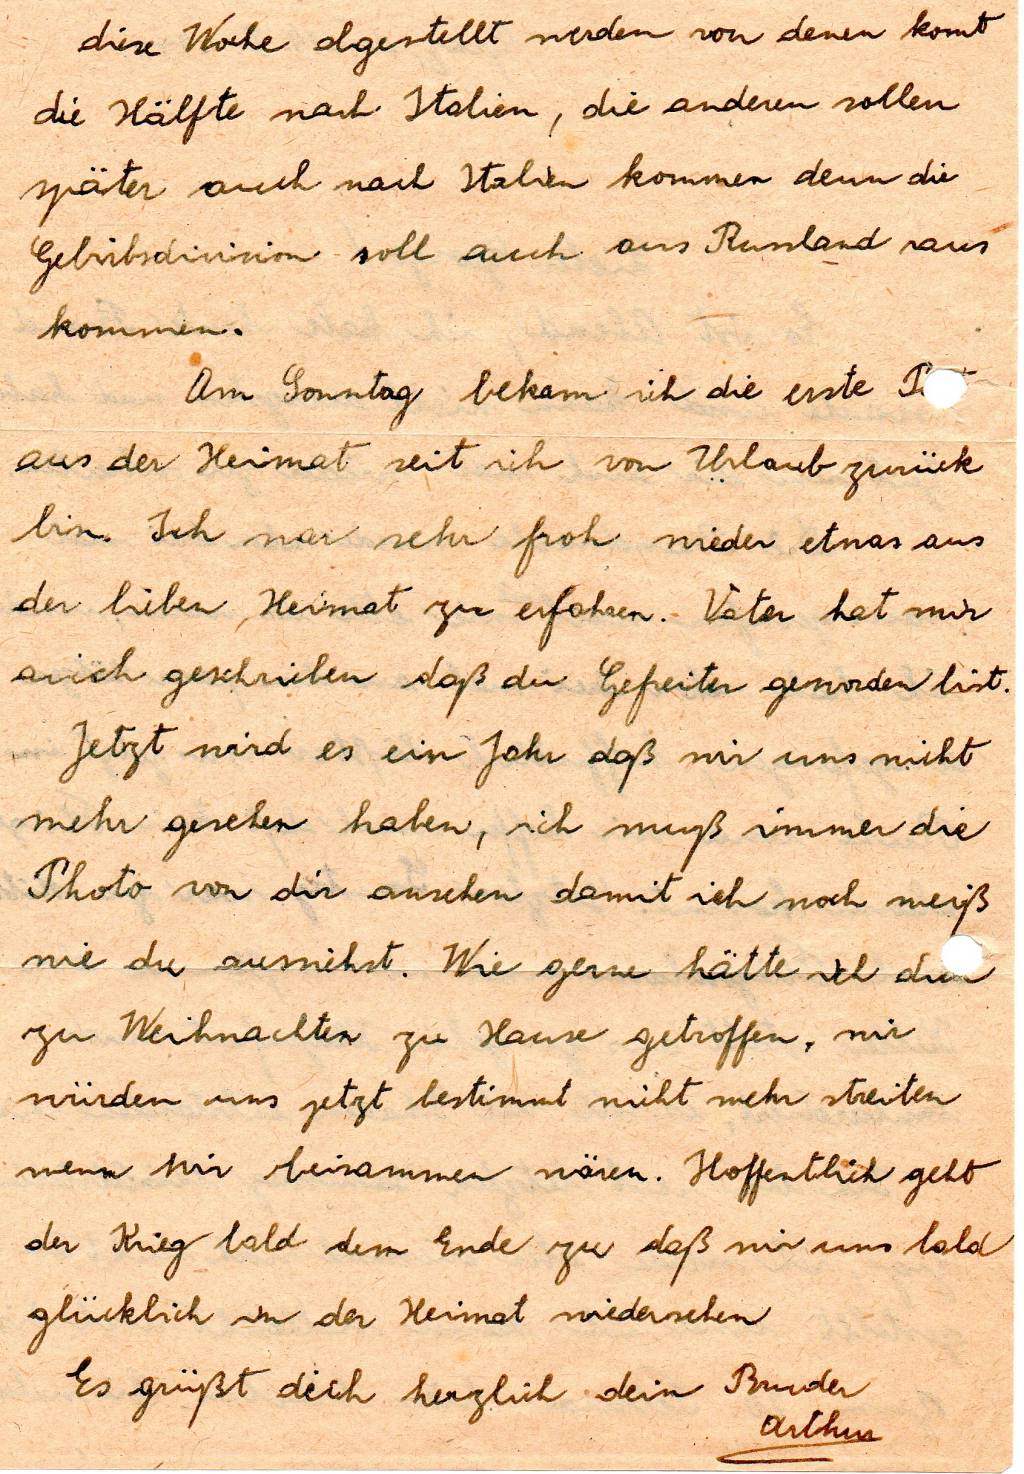 diese Woche abgestellt werden von denen komt
die Hälfte nach Italien, die anderen sollen
später auch nach Italien kommen denn die
Gebirbsdivision soll auch aus Russland raus
kommen.
Am Sonntag bekam ich die erste
aus der Heimat seit ich von Urlaub zurück
bin. Ich war sehr froh wieder etwas aus
der lieben Heimat zu erfahren. Vater hat mir
auch geschrieben daß du Gefreiter geworden bist.
Jetzt wird es ein Jahr daß wir uns nicht
mehr gesehen haben, ich muß immer die
Photo von dir ansehen damit ich noch weiß
wie du aussiehst. Wie gerne hätte ich dich
zu Weihnachten zu Hause getroffen, wir
würden uns jetzt bestimmt nicht mehr streiten
wenn wir beisammen wären. Hoffentlich geht
der Krieg bald dem Ende zu daß wir uns bald
glücklich in der Heimat wiedersehen
Es grüßt dich herzlich dein Bruder
Arthur